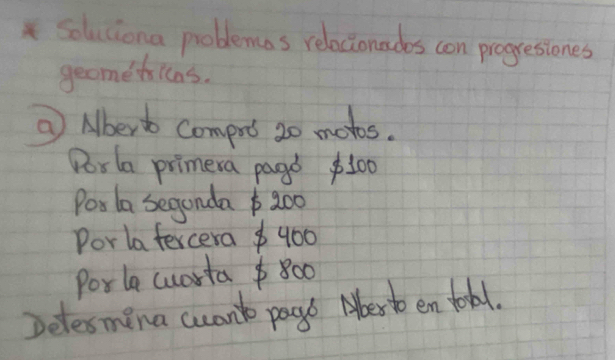 * Soluciona problemas relacionados con progresiones
geométricas.
a) Alberto Compró 20 motos.
Por la primera pagó $100
Por la segunda $200
Por la tercera $400
Por la cuarta $800
Determina cuanto pagó Alberto en total.